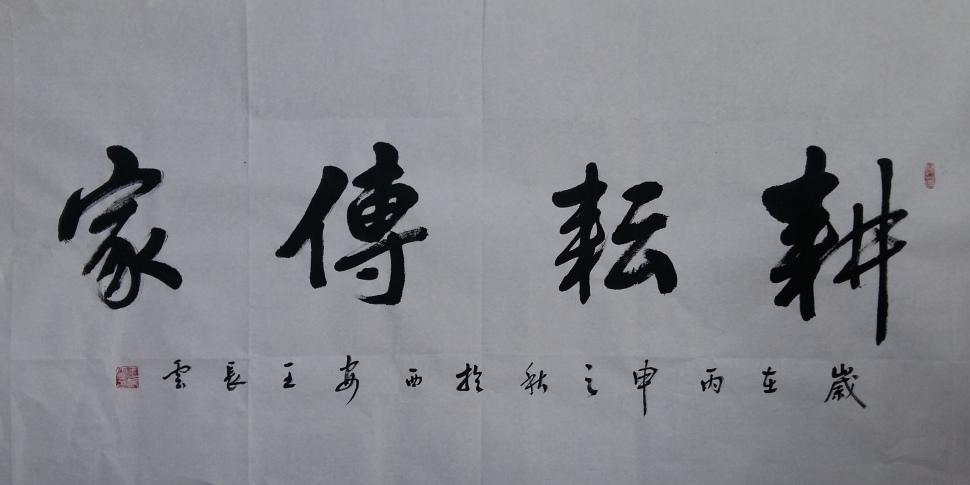 耕耘傳家
歲在丙申之秋於西安王長雲